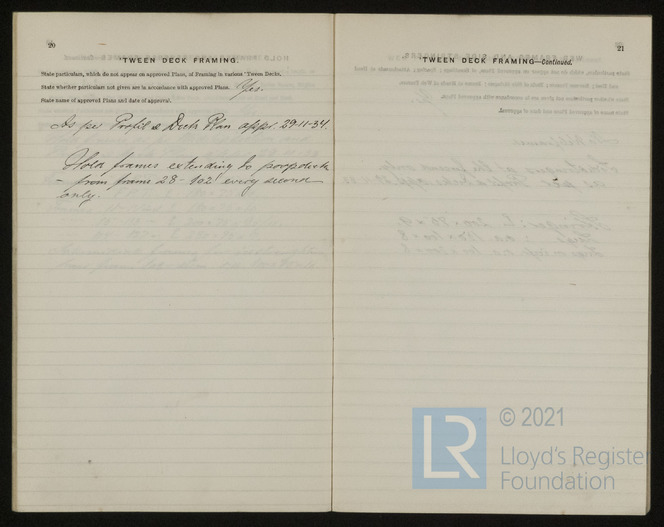 20
'TWEEN DECK FRAMING.
State particulars, which do not appear on approved Plans, of Framing in various 'Tween Decks.
State whether particulars not given are in accordance with approved Plans. Yes.
State name of approved Plans and date of approval.
As per Profil & Deck Plan appr. 29-11-34.
Hold frames extending to poopdeck
- from frame 28 - 102 every second
only.
21
'TWEEN DECK FRAMING—Continued.
© 2021
LR
Lloyd's Register
Foundation